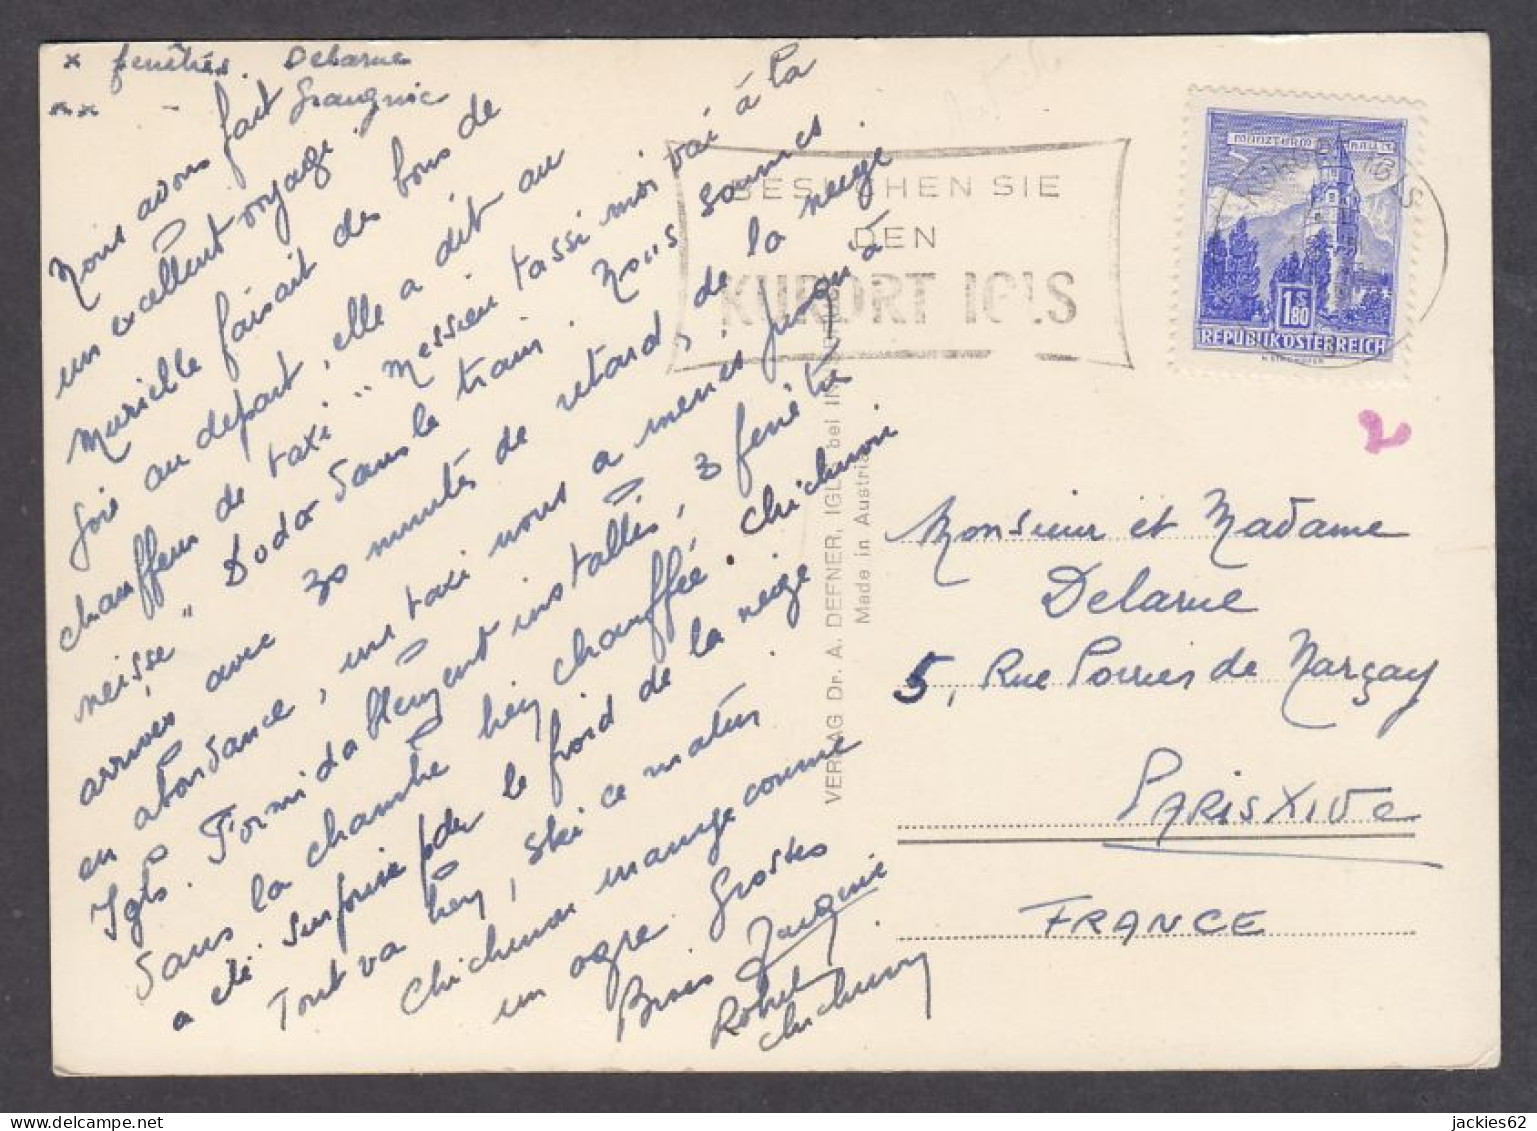 x fenêtres. Delarue
xx - Jacquie
Nous avons fait
un excellent voyage.
Murielle faisait des bons de
joie au départ, elle a dit au
chauffeur de taxi "Messieu tassi moi vai à la
neisse" Dodo dans le train. Nous sommes
arrivés avec 30 minutes de retard, de la neige
en abondance, un taxi nous a menés jusqu'à
Igls. Formidablement installés, 3 fenêtres
dans la chambre bien chauffée. Chichuron
a été surprise par le froid de la neige
Tout va bien, ski ce matin
Chichuron mange comme
un ogre. Grosses
Bises Jacquie
Robert
Chichuron
BESUCHEN SIE
DEN
KURORT IGLS
MÜNZTURM HALL i. T.
1 S 80
REPUBLIK ÖSTERREICH
VERLAG Dr. A. DEFNER, IGLS bei INNSBRUCK
Made in Austria
2
Monsieur et Madame
Delarue
5, Rue Poirier de Narçay
PARIS XIVe
FRANCE
jackies62